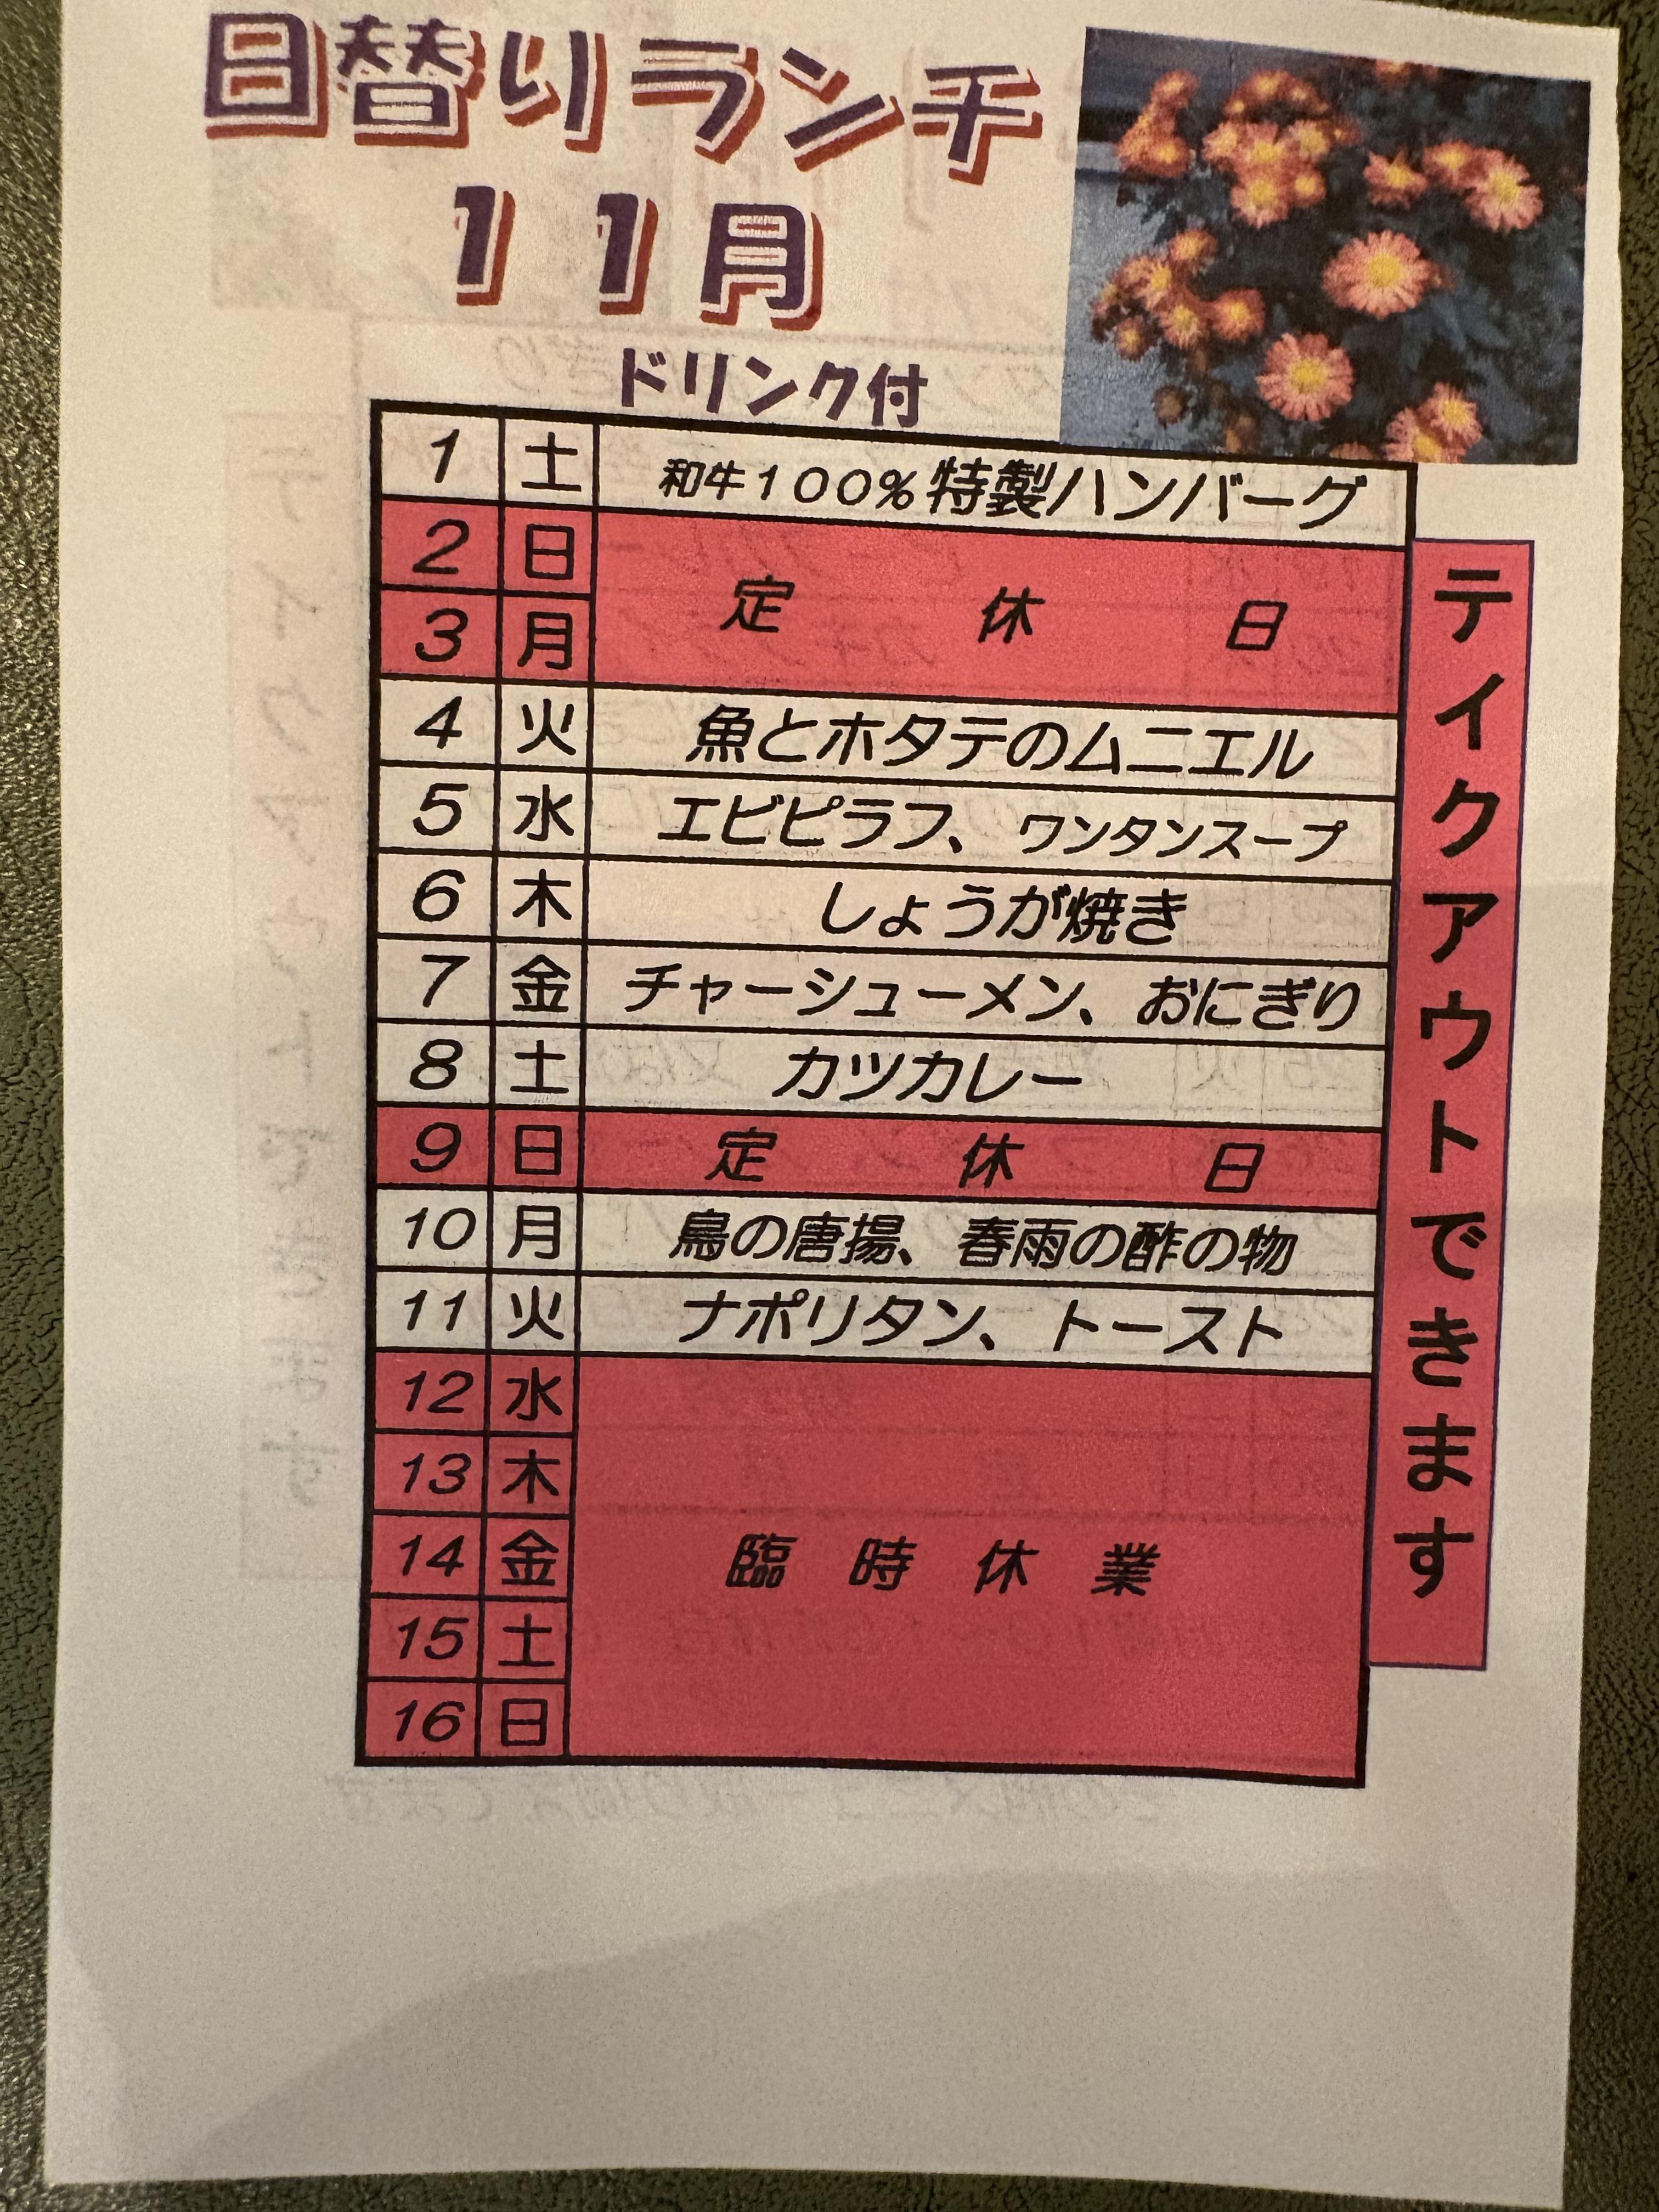 日替りランチ
11月
ドリンク付
1 土 和牛100%特製ハンバーグ
2 日
3 月
定休日
4 火 魚とホタテのムニエル
5 水 エビピラフ、ワンタンスープ
6 木 しょうが焼き
7 金 チャーシューメン、おにぎり
8 土 カツカレー
9 日 定休日
10 月 鳥の唐揚、春雨の酢の物
11 火 ナポリタン、トースト
12 水
13 木
14 金
15 土
16 日
臨時休業
テイクアウトできます